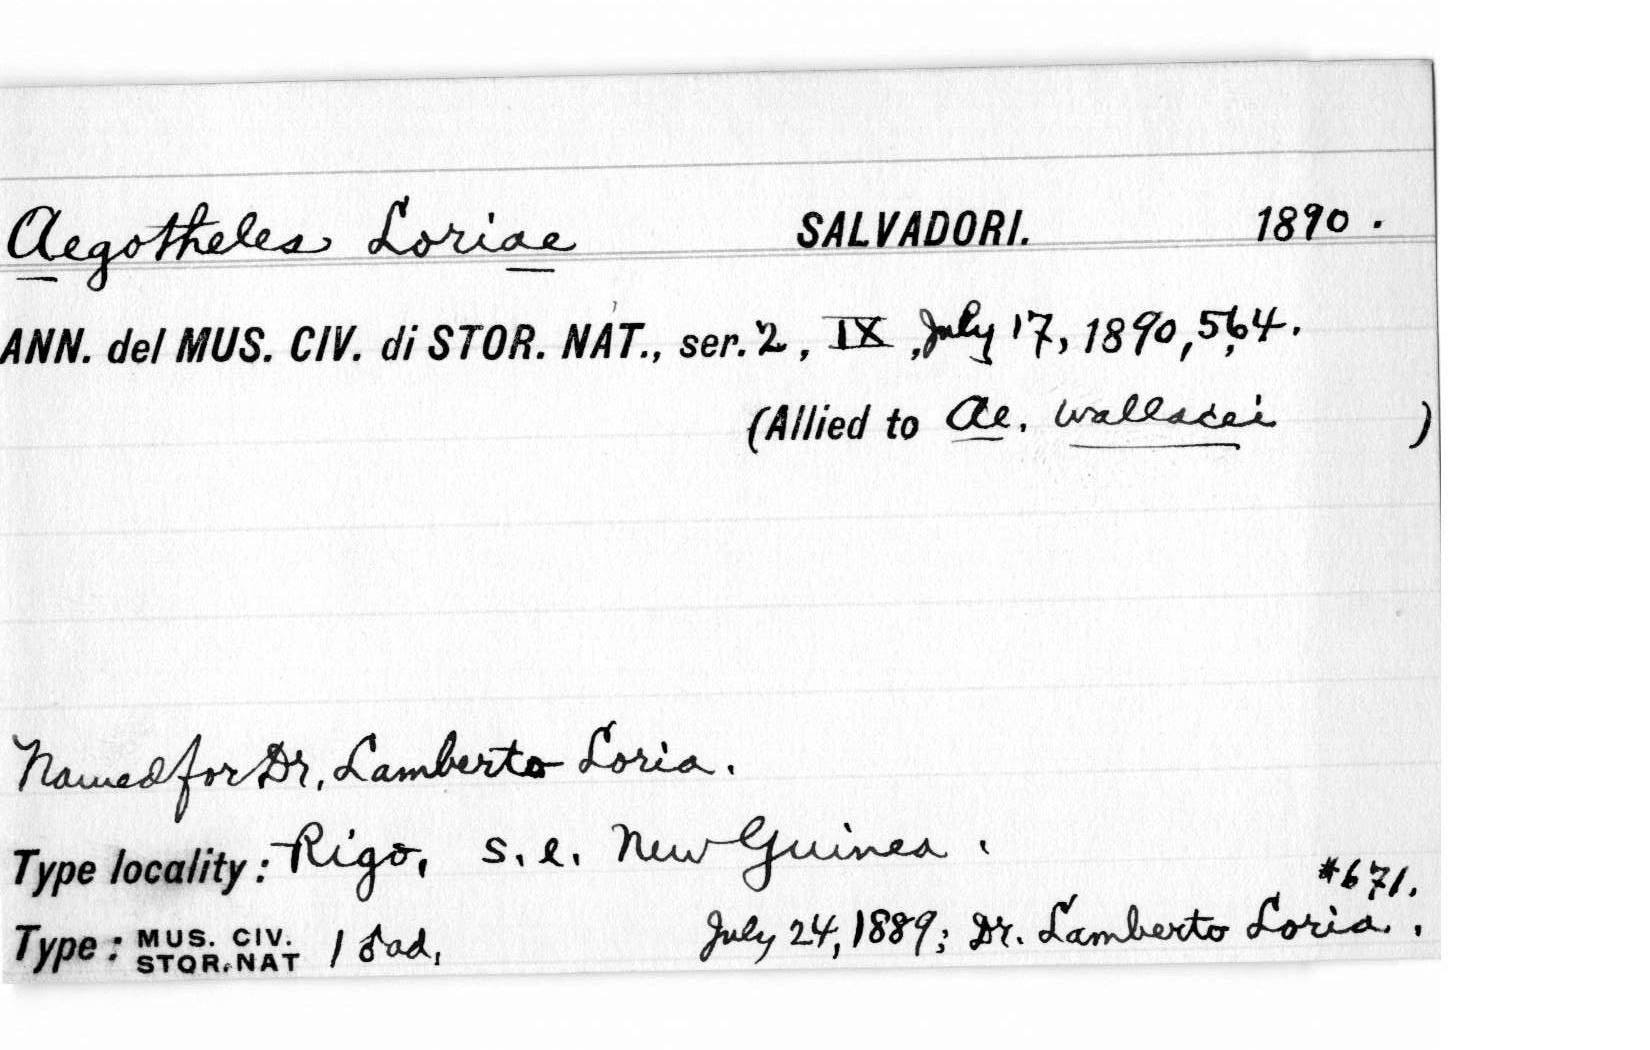 Aegotheles Loriae SALVADORI. 1890.
ANN. del MUS. CIV. di STOR. NAT., ser. 2, IX, July 17, 1890, 564.
(Allied to Ae. wallacei )
Named for Dr. Lamberto Loria.
Type locality: Rigo, s.e. New Guinea.
#671.
Type: MUS. CIV. STOR. NAT 1 ♂ ad. July 24, 1889; Dr. Lamberto Loria.